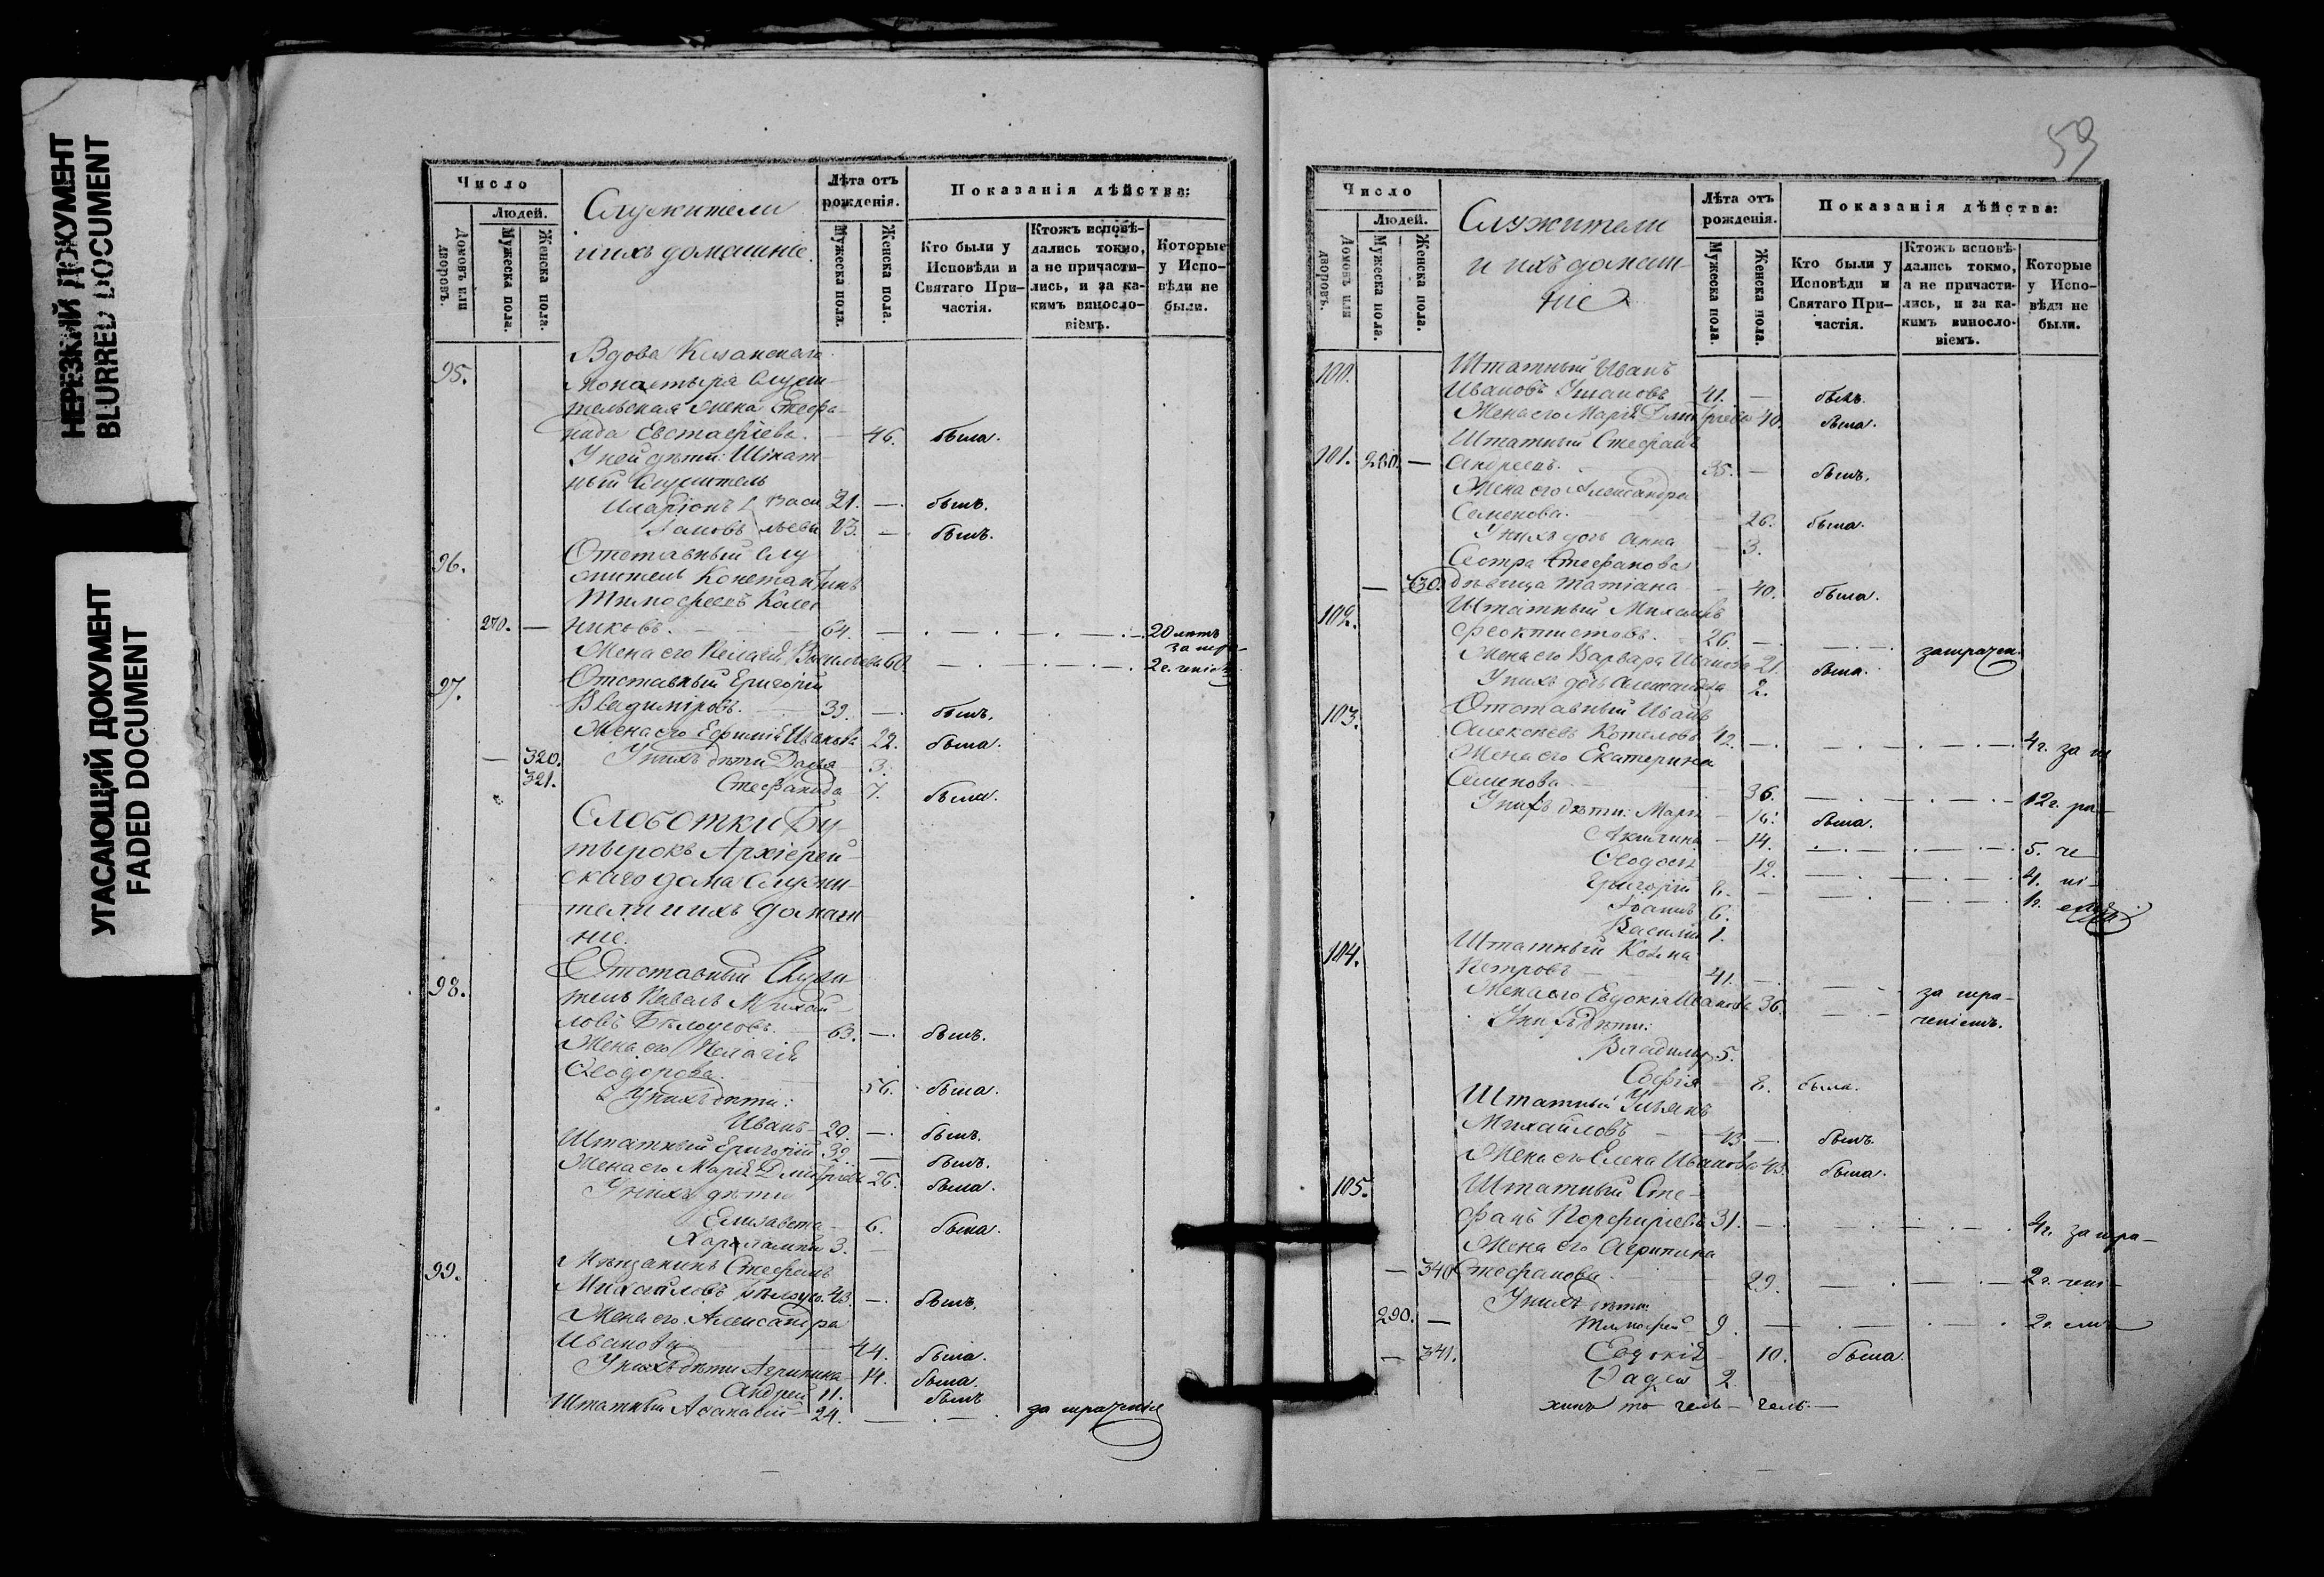 НЕРЕЗКИЙ ДОКУМЕНТ
BLURRED DOCUMENT
УГАСАЮЩИЙ ДОКУМЕНТ
FADED DOCUMENT
Число
Людей.
Домовъ или дворовъ.
Мужеска пола.
Женска пола.
Служители
и ихъ домашніе.
Лѣта отъ рожденія.
Мужеска пола.
Женска пола.
Показанія дѣйства:
Кто были у Исповѣди и Святаго Причастія.
Ктожъ исповѣдались токмо, а не причастились, и за какимъ винословіемъ.
Которые у Исповѣди не были.
95. Вдова
Монастыря Служи-
тельская жена Стефа-
нида Евстафіева. — 46. была.
У ней дѣти: Штат-
ный Служитель
Иларіонъ Васи 21. — былъ.
Іаковъ льевы 13. — былъ.
96. Отставный Слу
житель Константинъ
Тимофеевъ
270. — никовъ. 64. — . — . — . — . 20 лѣтъ
за нера-
Жена его Пелагія Васильева 60. — . — . — . 2 г. ченіемъ
97. Отставный Григорій
Владиміровъ. 39. — былъ.
Жена его Евфимія Иванова 22. была.
— 320. У нихъ дѣти Дарья 3.
321. Стефанида 7. была.
Слоботки Бу-
тырокъ Архіерей-
скаго дома Служи-
тели и ихъ домаш-
ніе.
98. Отставный Служи
тель Павелъ Михай-
ловъ Бѣлоусовъ. 63. — былъ.
Жена его Пелагія
Ѳеодорова. 56. была.
У нихъ дѣти:
Иванъ 20. — былъ.
Штатный Григорій 32 — былъ.
Жена его Марія Дмитріева 26. была.
У нихъ дѣти
Елизавета — 6. была.
Харалампій 3. —
99. Мѣщанинъ Стефанъ
Михайловъ Бѣлоусо. 43. — былъ.
Жена его Александра
Иванова 44. была.
У нихъ дѣти Агрипина — 14. была.
Андрей 11. былъ
Штатный Аѳанасій 24. — . — . за нераченіе
59
Число
Людей.
Домовъ или дворовъ.
Мужеска пола.
Женска пола.
Служители
и ихъ домаш-
ніе
Лѣта отъ рожденія.
Мужеска пола.
Женска пола.
Показанія дѣйства:
Кто были у Исповѣди и Святаго Причастія.
Ктожъ исповѣдались токмо, а не причастились, и за какимъ винословіемъ.
Которые у Исповѣди не были.
100. Штатный Иванъ
Ивановъ Ушаковъ 41. — былъ.
Жена его Марія Дмитріева 40. была.
Штатный Стефанъ
101. 280. — Андреевъ. 35. — былъ.
Жена его Александра
Семенова. — 26. была.
У нихъ дочь Анна — 3.
Сестра Стефанова
— 330. дѣвица Татіана — 40. была.
102. Штатный Михаилъ
Феоктистовъ. 26. — . — . — . занерачен.
Жена его Варвара Иванова 21. была.
У нихъ дочь Александра 2.
103. Отставный Иванъ
Алексѣевъ Котеловъ 42. — . — . — . — . — 4 г. за не
Жена его Екатерина
Семенова 36. — . — . — . — 12 г. ра-
У нихъ дѣти: Марія — 16. была.
Акилина — 14. — . — . — . 5. че
Ѳеодосія 12. — . — . — 4. ні-
Григорій 8. — — . — . — 1 г. емъ
Іоаннъ 6.
Василій 1.
104. Штатный Козма
Петровъ 41. — . — . — за нера-
Жена его Евдокія Иванова 36. — . — ченіемъ.
У нихъ дѣти:
Владиміръ 5.
Софія — 8. была.
Штатный Ульянъ
Михайловъ — 43 — . былъ.
Жена его Елена Иванова 43. была.
105. Штатный Сте-
фанъ Порфиріевъ 31. — . — . — . — . 4 г. за нера-
Жена его Агрипина
— 340 Стефанова. 29. — . — . — 2 г. чені-
У нихъ дѣти:
290. — Тимофей 9. — . — . — . 2 г. емъ
— 341. Евдокія — 10. была.
2.